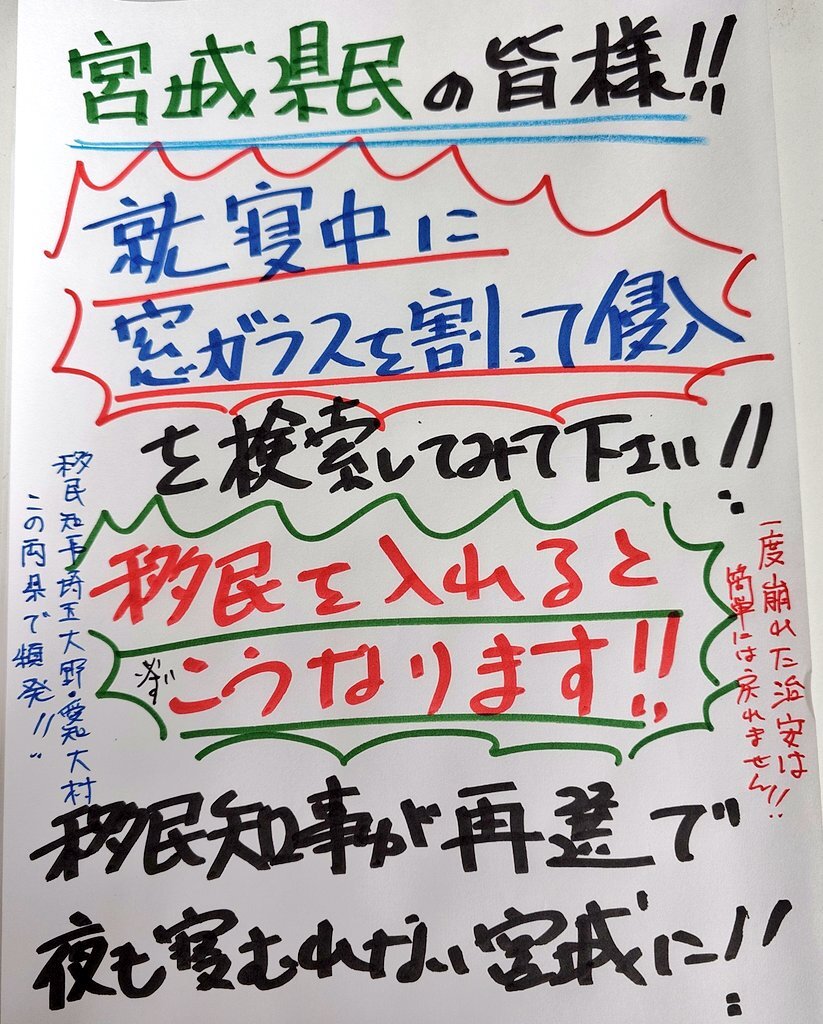 宮城県民の皆様!!
就寝中に
窓ガラスを割って侵入
を検索してみて下さい!!
移民を入れると
必ずこうなります!!
移民知事埼玉大野・愛知大村
この両県で頻発!!
一度崩れた治安は
簡単には戻れません!!
移民知事が再選で
夜も寝むれない宮城に!!